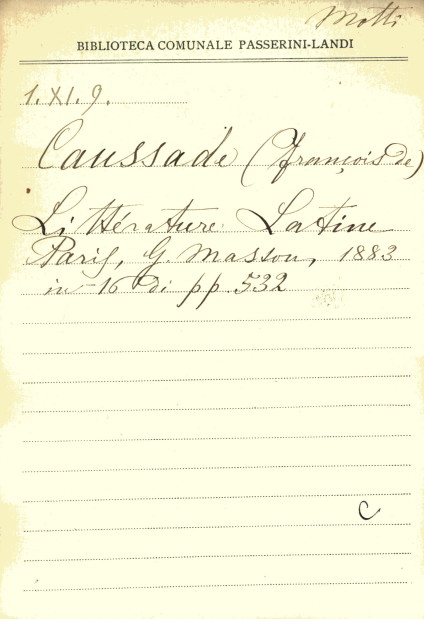 Motti
BIBLIOTECA COMUNALE PASSERINI-LANDI
1. XI. 9.
Caussade (François de)
Littérature Latine
Paris, G. Masson, 1883
in-16 di pp. 532
C